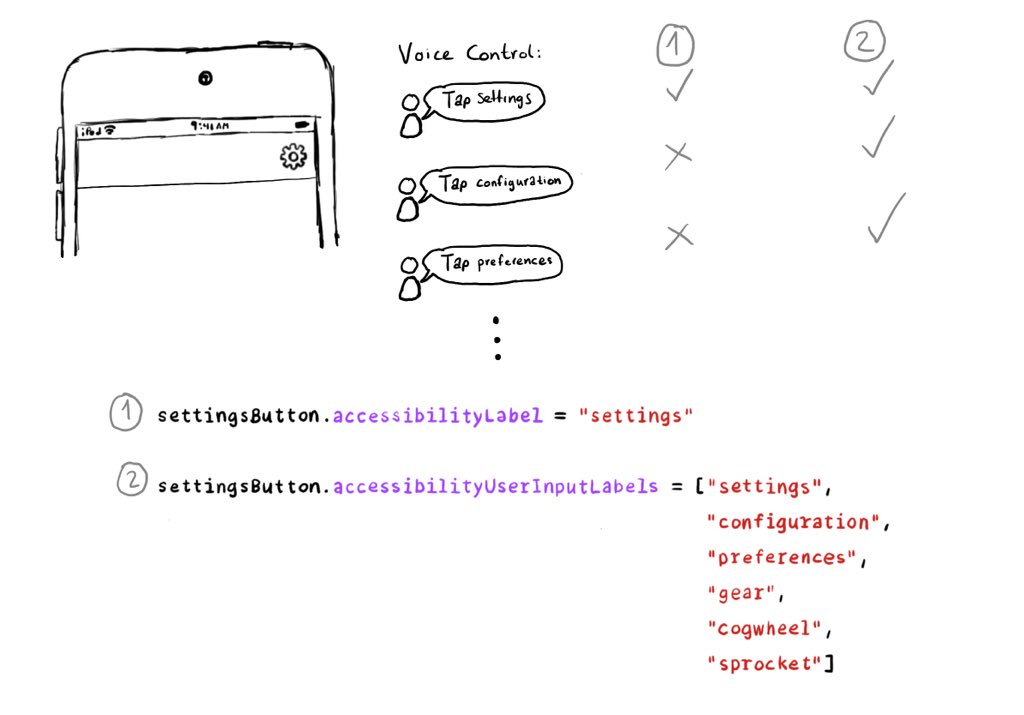 Voice Control:
1
2
Tap Settings
iPod
9:41 AM
Tap configuration
Tap preferences
1 settingsButton.accessibilityLabel = "settings"
2 settingsButton.accessibilityUserInputLabels = ["settings",
"configuration",
"preferences",
"gear",
"cogwheel",
"sprocket"]